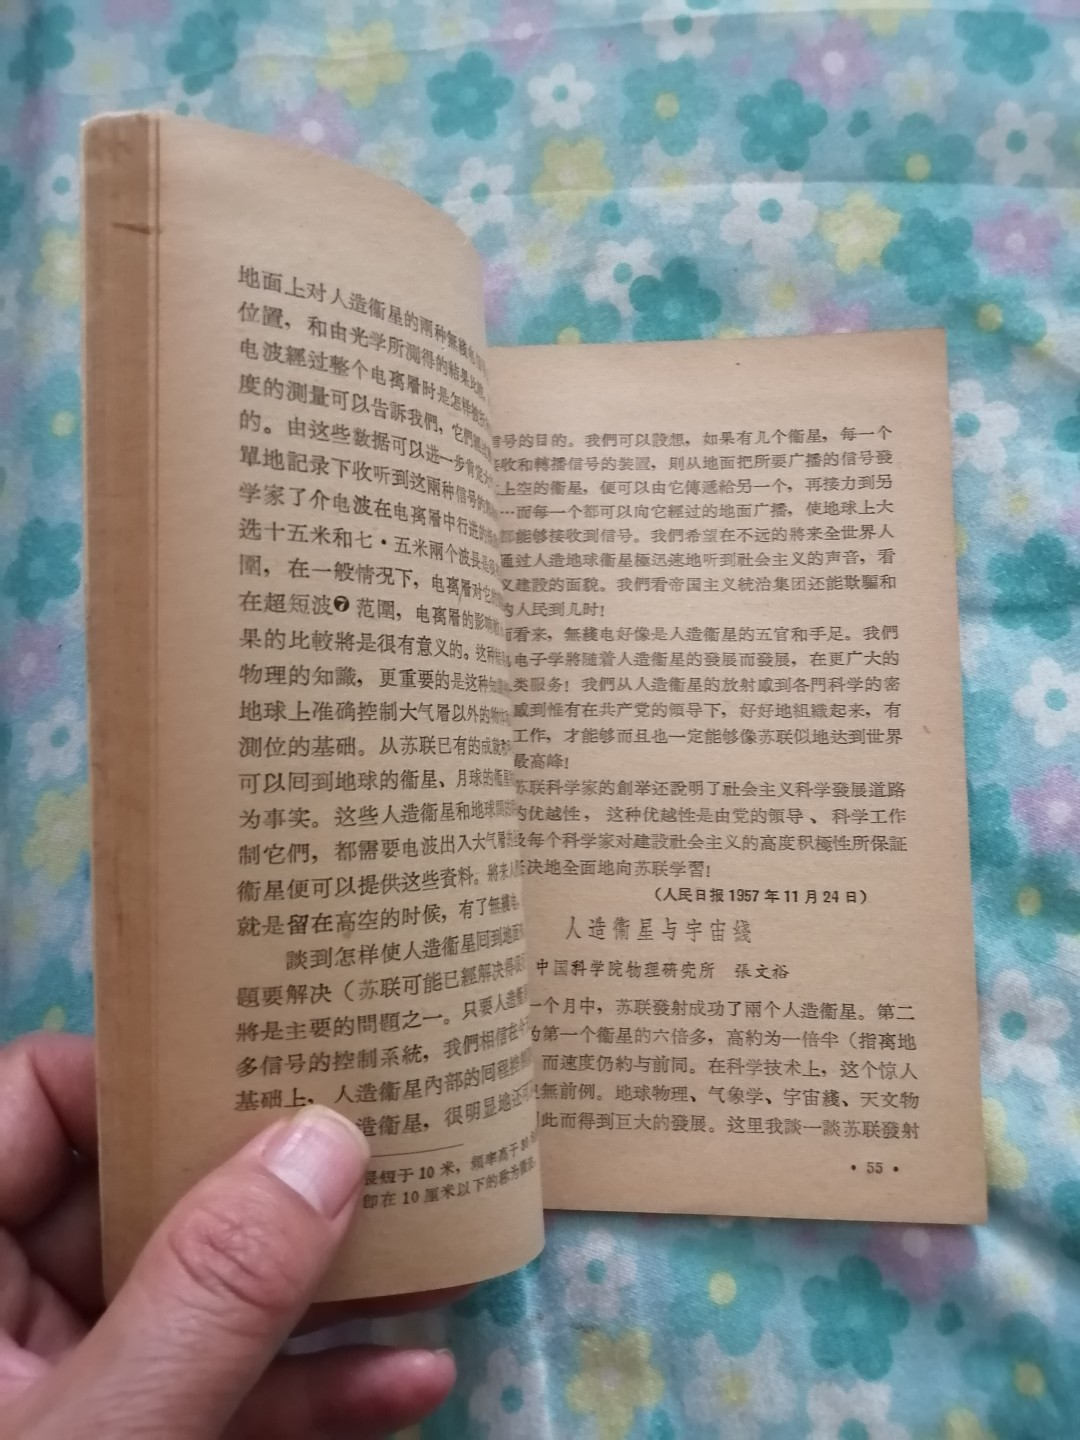 地面上对人造衞星的兩种無綫电
位置，和由光学所測得的結果比較，
电波經过整个电离層时是怎样被
度的測量可以告訴我們，它們
的。由这些数据可以进一步肯定
單地記录下收听到这兩种信号的
学家了介电波在电离層中行进的
选十五米和七·五米兩个波長是
圍，在一般情况下，电离層对它
在超短波❼范圍，电离層的影响
果的比較將是很有意义的。这种
物理的知識，更重要的是这种知
地球上准确控制大气層以外的物
測位的基础。从苏联已有的成就
可以囘到地球的衞星、月球的衞星
为事实。这些人造衞星和地球
制它們，都需要电波出入大气層
衞星便可以提供这些資料。將来人
就是留在高空的时候，有了無綫电
談到怎样使人造衞星囘到地面
題要解决（苏联可能已經解决得
將是主要的問題之一。只要人造衞
多信号的控制系統，我們相信在今
基础上，人造衞星內部的囘程控制
造衞星，很明显地还可
長短于10米，頻率高于30
卽在10厘米以下的称为微波。
信号的目的。我們可以設想，如果有几个衞星，每一个
接收和轉播信号的装置，則从地面把所要广播的信号發
上空的衞星，便可以由它傳遞給另一个，再接力到另
…而每一个都可以向它經过的地面广播，使地球上大
都能够接收到信号。我們希望在不远的將来全世界人
通过人造地球衞星極迅速地听到社会主义的声音，看
义建設的面貌。我們看帝国主义統治集团还能欺騙和
的人民到几时！
面看来，無綫电好像是人造衞星的五官和手足。我們
电子学將随着人造衞星的發展而發展，在更广大的
类服务！我們从人造衞星的放射感到各門科学的密
感到惟有在共产党的領导下，好好地組織起来，有
工作，才能够而且也一定能够像苏联似地达到世界
最高峰！
苏联科学家的創举还說明了社会主义科学發展道路
的优越性，这种优越性是由党的領导、科学工作
及每个科学家对建設社会主义的高度积極性所保証
坚决地全面地向苏联学習！
（人民日报1957年11月24日）
人造衞星与宇宙綫
中国科学院物理研究所　張文裕
一个月中，苏联發射成功了兩个人造衞星。第二
为第一个衞星的六倍多，高約为一倍半（指离地
而速度仍約与前同。在科学技术上，这个惊人
史無前例。地球物理、气象学、宇宙綫、天文物
因此而得到巨大的發展。这里我談一談苏联發射
• 55 •